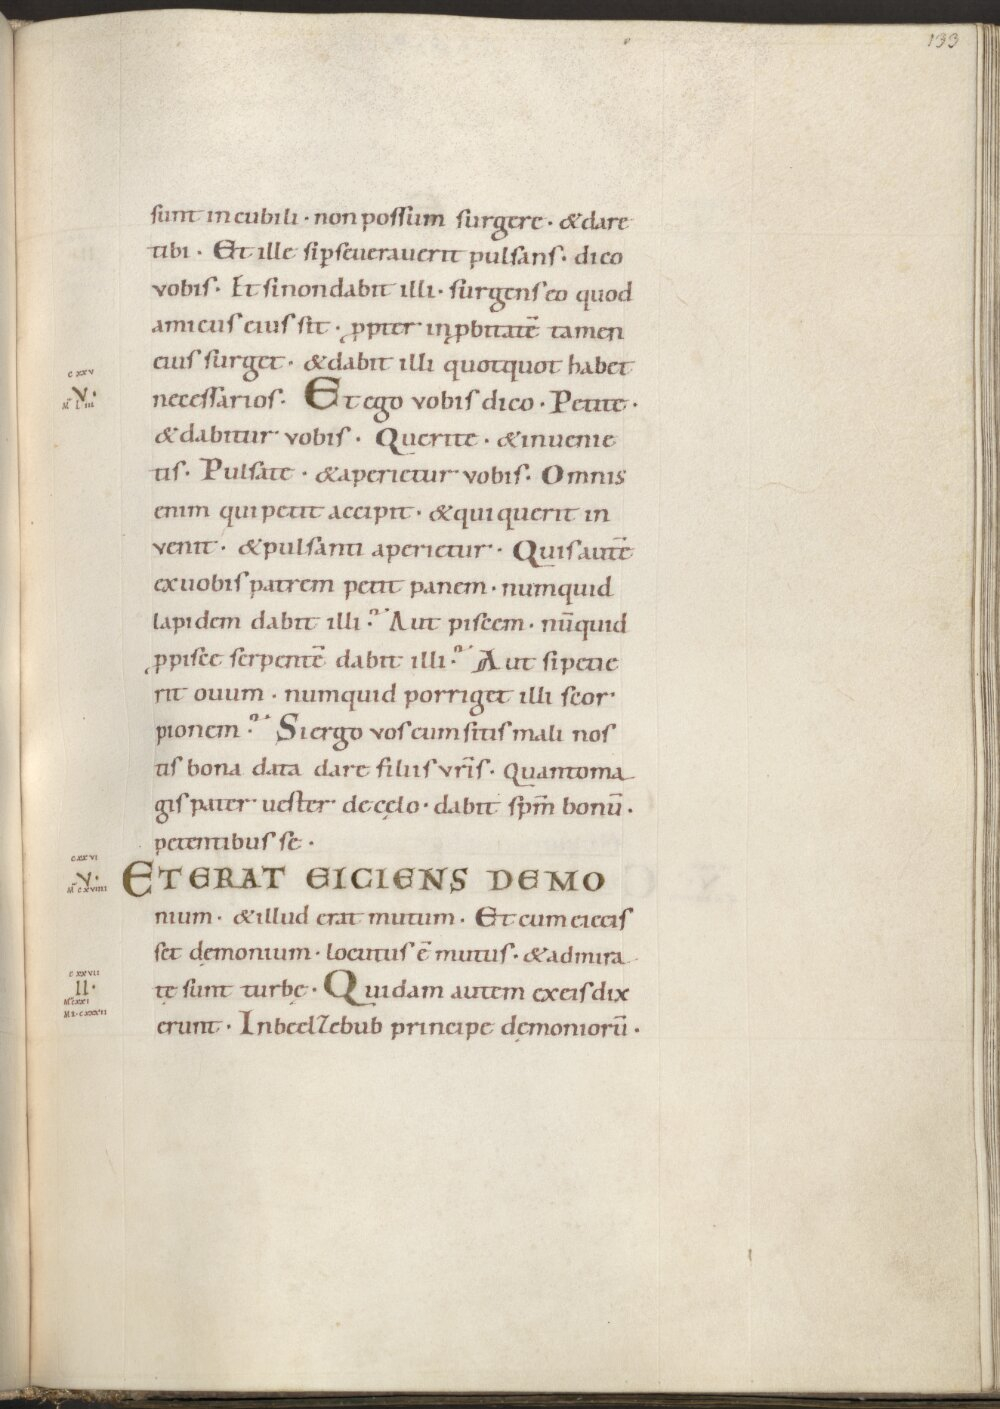 133
sunt in cubili · non possum surgere · & dare
tibi · Et ille si pseuerauerit pulsans · dico
vobis · Et si non dabit illi · surgens eo quod
amicus eius sit · ppter inpbitatē tamen
eius surget · & dabit illi quotquot habet
c xxv
V·
M̄ L III
necessarios · Et ego vobis dico · Petite ·
& dabitur vobis · Querite · & inuenie
tis · Pulsate · & aperietur vobis · Omnis
enim qui petit accipit · & qui querit in
venit · & pulsanti aperietur · Quis autē
ex uobis patrem petit panem · numquid
lapidem dabit illi ? Aut piscem · nūquid
p pisce serpentē dabit illi ? Aut si petie
rit ouum · numquid porriget illi scor
pionem ? Si ergo vos cum sitis mali nos
tis bona data dare filiis vr̄is · Quanto ma
gis pater uester de cęlo · dabit spm̄ bonū ·
petentibus se ·
c xx vi
V·
M̄ c xviiii
ET ERAT EICIENS DEMO
nium · & illud erat mutum · Et cum eiecis
set dęmonium · locutus ē mutus · & admira
c xx vii
II·
M̄ c xxi
M̄R · c xxx ii
tę sunt turbę · Quidam autem ex eis dix
erunt · In beelzebub principe dęmoniorū ·